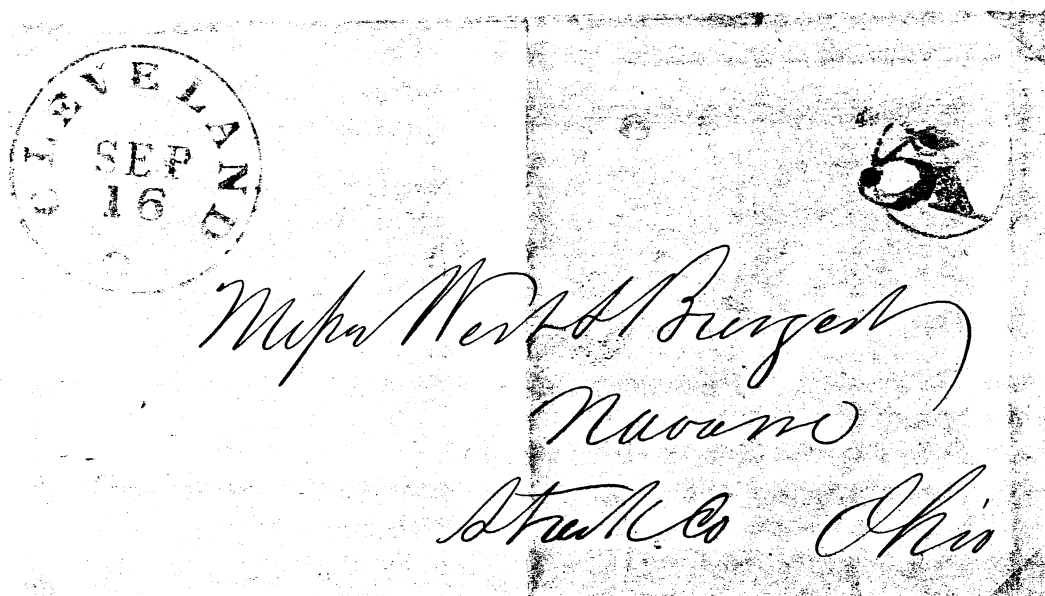 CLEVELAND
SEP
16
5
Messrs West & Burgert
Navarre
Stark Co Ohio